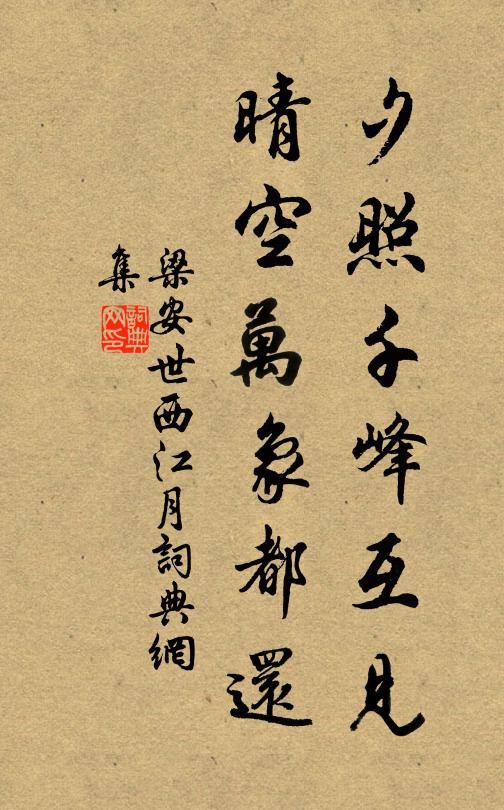 夕照千峰互見
晴空萬象都還
梁安世西江月詞典網
集
詞典
网印